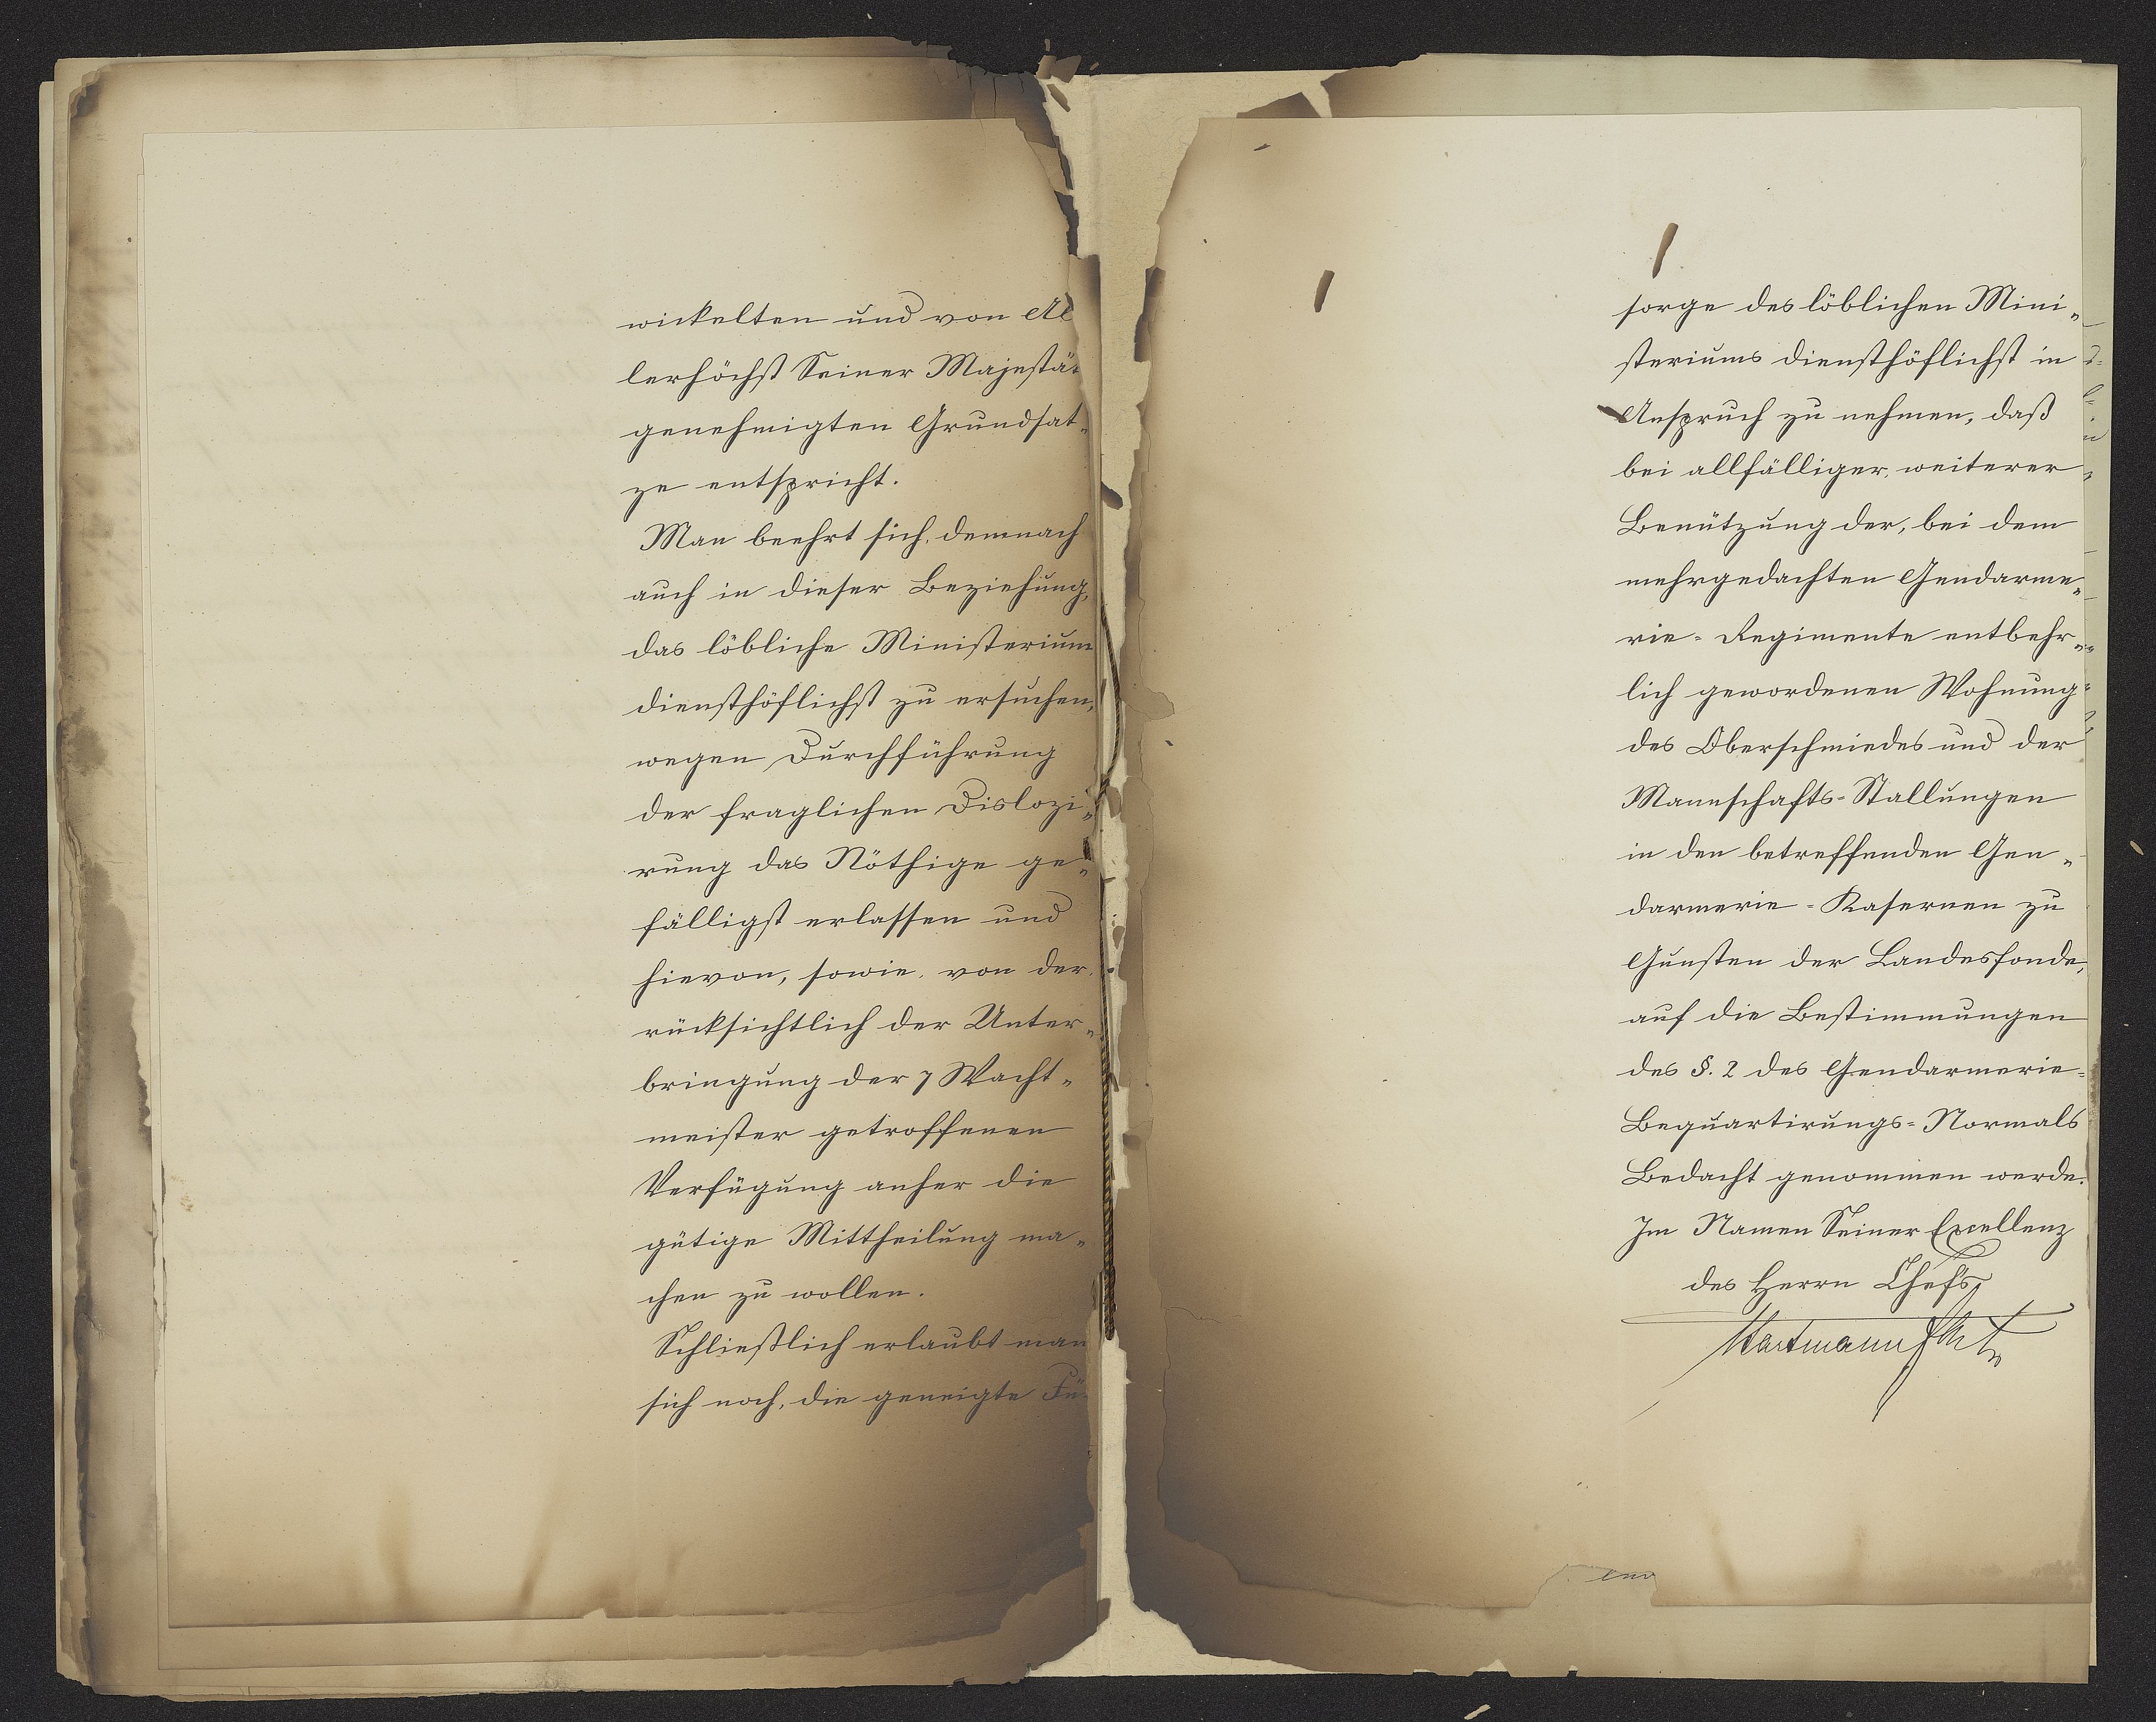 wickelten und von Al
lerhöchst Seiner Majestät
genehmigten Grundsat-
ze entspricht.
Man beehrt sich, demnach
auch in dieser Beziehung,
das löbliche Ministerium
diensthöflichst zu ersuchen,
wegen Durchführung
der fraglichen Dislozi-
rung das Nöthige ge-
fälligst erlassen und
hievon, sowie, von der,
rücksichtlich der Unter-
bringung der 7 Wacht-
meister getroffenen
Verfügung anher die
gütige Mittheilung ma-
chen zu wollen.
Schließlich erlaubt man
sich noch, die geneigte Für-
sorge des löblichen Mini-
steriums diensthöflichst in
Anspruch zu nehmen, daß
bei allfälliger, weiterer
Benützung der, bei dem
mehrgedachten Gendarme-
rie-Regimente entbehr-
lich gewordenen Wohnung
des Oberschmiedes und der
Mannschafts-Stallungen
in den betreffenden Gen-
darmerie-Kasernen zu
Gunsten der Landesfonde,
auf die Bestimmungen
des §. 2 des Gendarmerie-
Bequartirungs-Normals
Bedacht genommen werde.
Im Namen Seiner Excellenz
des Herrn Chefs,
Hartmann